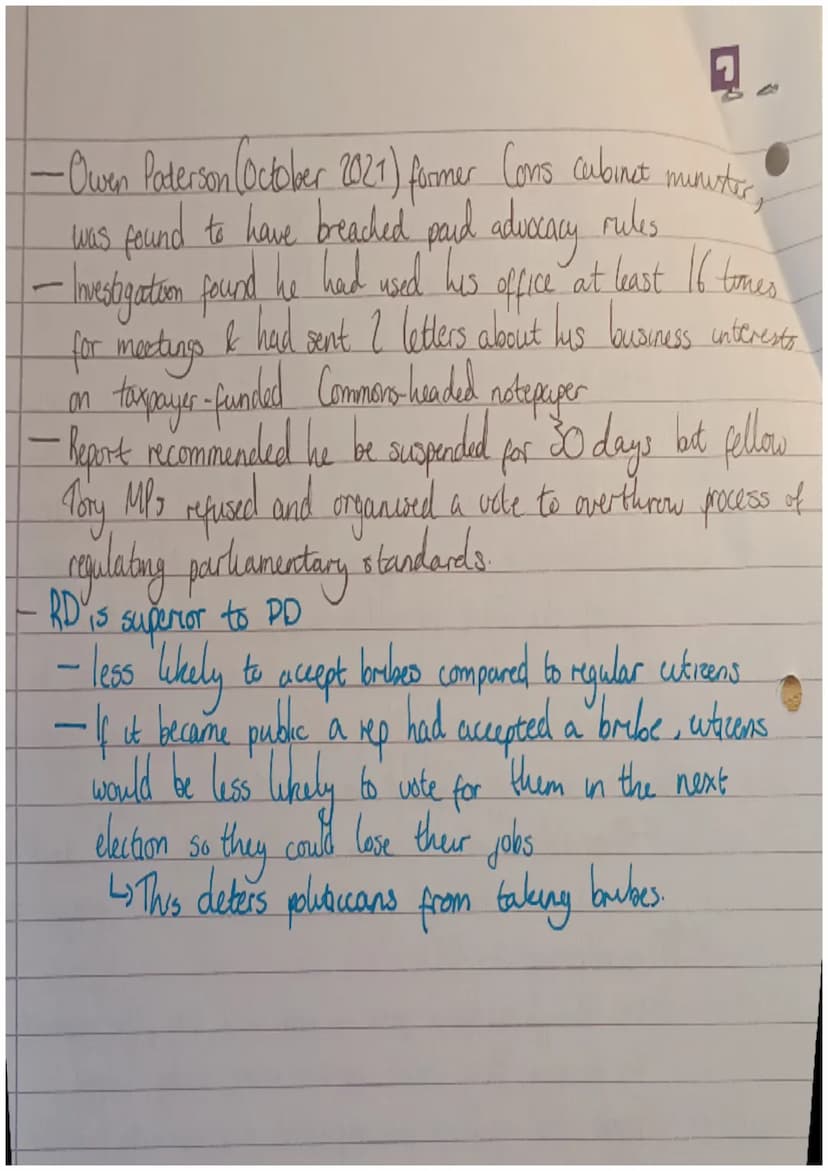 — Owen Paterson (October 2021) former Cons cabinet minister,
was found to have breached paid advocacy rules
— Investigation found he had used his office at least 16 times
for meetings & had sent 2 letters about his business interests
on taxpayer-funded Commons-headed notepaper
— Report recommended he be suspended for 30 days but fellow
Tory MPs refused and organised a vote to overthrow process of
regulating parliamentary standards.
- RD is superior to DD
— less likely to accept bribes compared to regular citizens
— If it became public a rep had accepted a bribe, citizens
would be less likely to vote for them in the next
election so they could lose their jobs
↳ This deters politiccans from taking bribes.